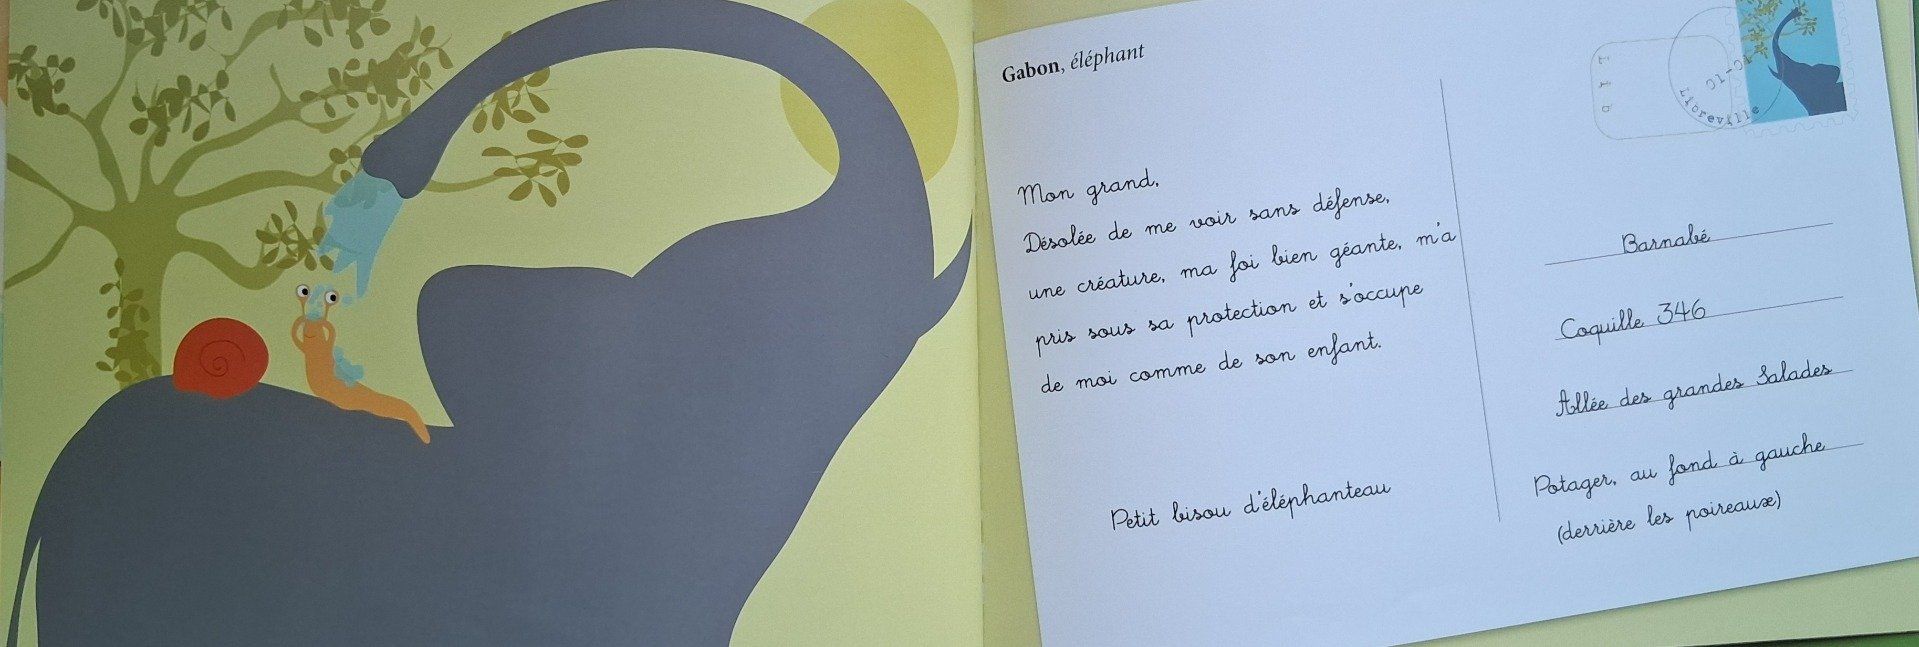 Gabon, éléphant
Mon grand,
Désolée de me voir sans défense,
une créature, ma foi bien géante, m'a
pris sous sa protection et s'occupe
de moi comme de son enfant.
Petit bisou d'éléphanteau
Lib
01-04
Libreville
Barnabé
Coquille 346
Allée des grandes Salades
Potager, au fond à gauche
(derrière les poireaux)